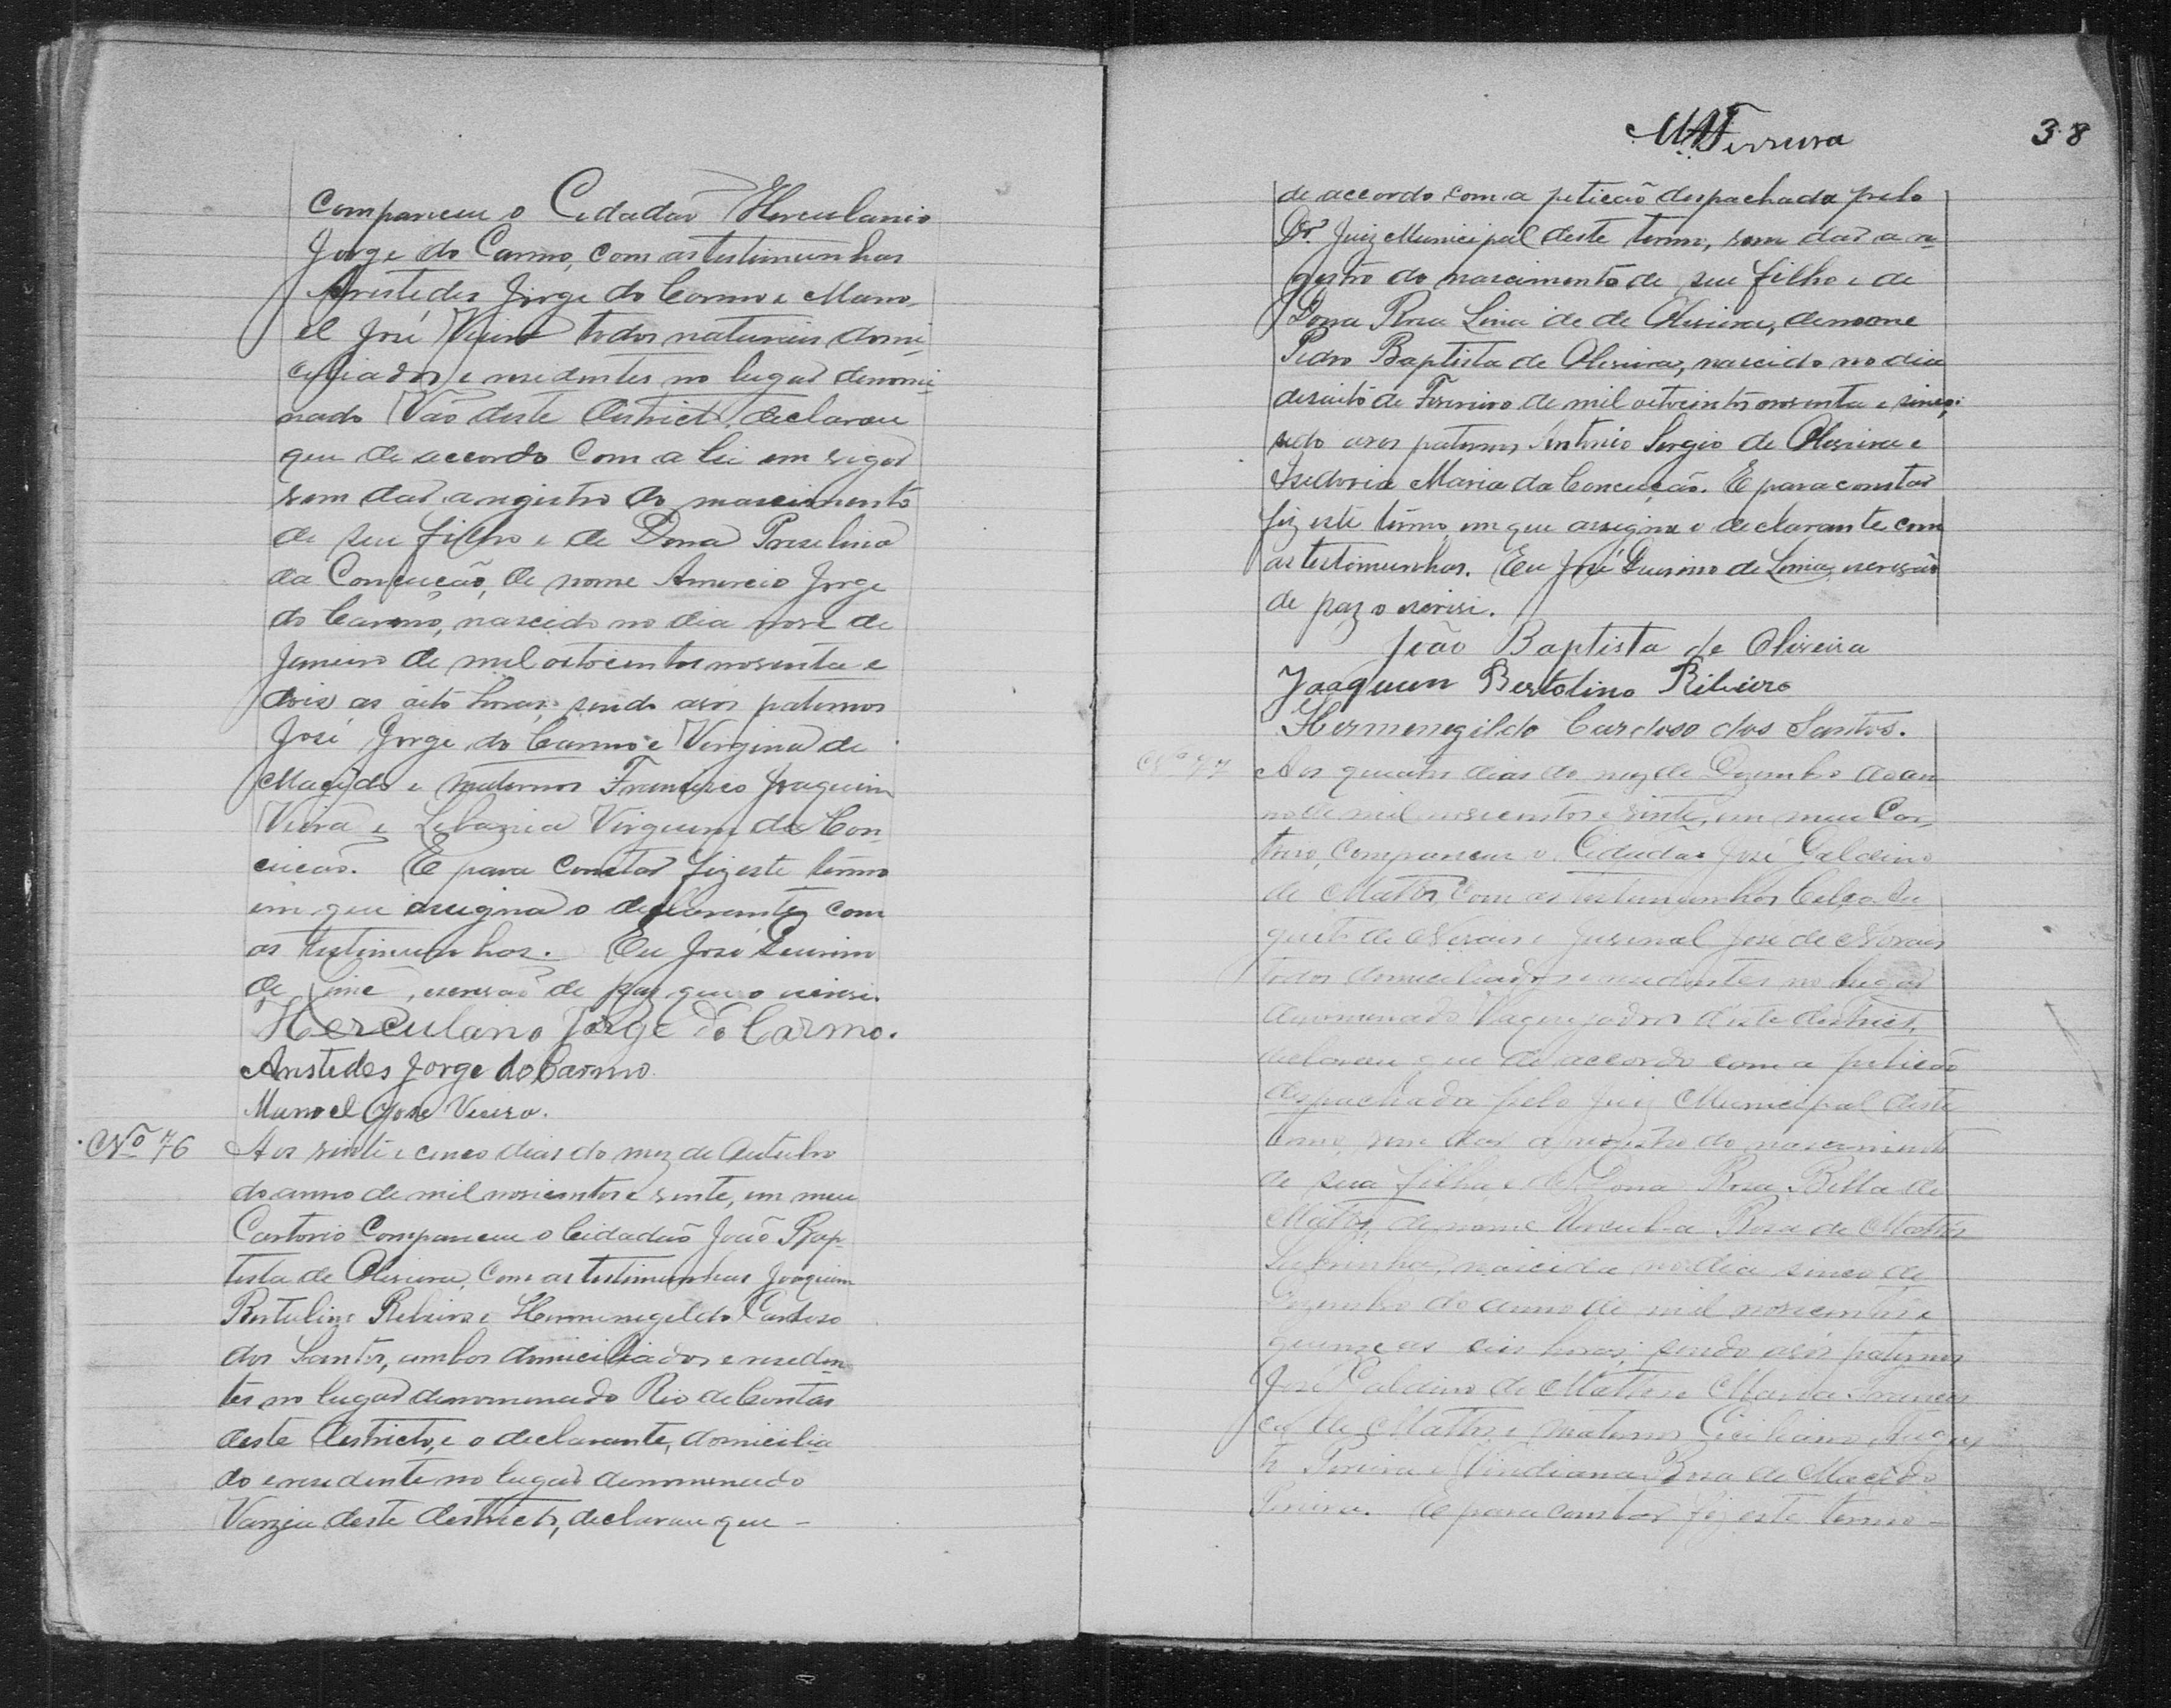 compareceu o Cidadão Herculanio
Jorge do Carmo, com as testimunhas
Aristedes Jorge do Carmo e Mano-
el José Vieira todos naturais domi-
ciliados e residentes no lugar denomi-
nado Vão deste districto, declarou
que de accordo com a lei em vigor
vem dar a registro do nascimento
de seu filho e de Dona
da Conceição, de nome Jorge
do Carmo, nascido no dia nove de
Janeiro de mil oitocentos noventa e
dois as oito horas, sendo avós paternos
José Jorge do Carmo e Virgina de
Macêdo e maternos Francisco Joaquim
Vieira e Libania da Con-
ceicão. E para constar fiz este têrmo
em que assigna o declarante com
as testimunhas. Eu José
de Lima, escrivão de paz que o escrevi.
Herculano Jorge do Carmo.
Aristedes Jorge do Carmo
Manoel José Vieira.
Nº 76 Aos vinte e cinco dias do mez de Outubro
do anno de mil novicentos e vinte, em meu
Cartorio compareceu o Cidadão João Bap-
tista de Oliveira, com as testimunhas Joaquim
Bertulino Ribeiro e Hermenegildo Cardoso
dos Santos, ambos domiciliados e residen-
tes no lugar denominado Rio de Contas
deste districto, e o declarante, domicilia-
do e residente no lugar denominado
Varzea deste districto, declarou que -
M. Ferreira 38
de accordo com a peticão despachada pelo
Dr. Juiz Municipal deste termo, vem dar a re-
gistro do nascimento de seu filho e de
Dona Rosa Lina de de Oliveira, de nome
Pedro Baptista de Oliveira, nascido no dia
desoito de Fevereiro de mil oitocentos noventa e sinco;
sedo avos paternos Antonio Sergio de Oliveira e
Isedoria Maria da Conceição. E para constar
fiz este têrmo em que assigna o declarante com
as testemunhas. Eu José de Lima, escrivão
de paz o escrivi.
João Baptista de Oliveira
Joaquim Bertolino Ribeiro
Hermenegildo Cardoso dos Santos.
Nº 77 Aos quatro dias do mez de Dezembro do an-
no de mil novicentos e vinte, em meu Car-
torio, compareceu o Cidadão José Galdino
de Mattos com as testemunhas
de Novais e Juvenal José de Novais
todos domiciliados e residentes no lugar
denominado deste districto,
declarou que de accordo com a peticão
despachada pelo Juiz Municipal deste
termo, vem dar a registro do nascimento
de sua filha e de Dona Rosa Bella de
Mattos, de nome Rosa de Mattos
nascida no dia sinco de
Dezembro do anno de mil novicentos e
quinze as seis horas; sendo avós paternos
José Galdino de Mattos e Maria Francis-
ca de Mattos e maternos Augus-
to Pereira e Rosa de Macêdo
Pereira. E para constar fiz este termo -